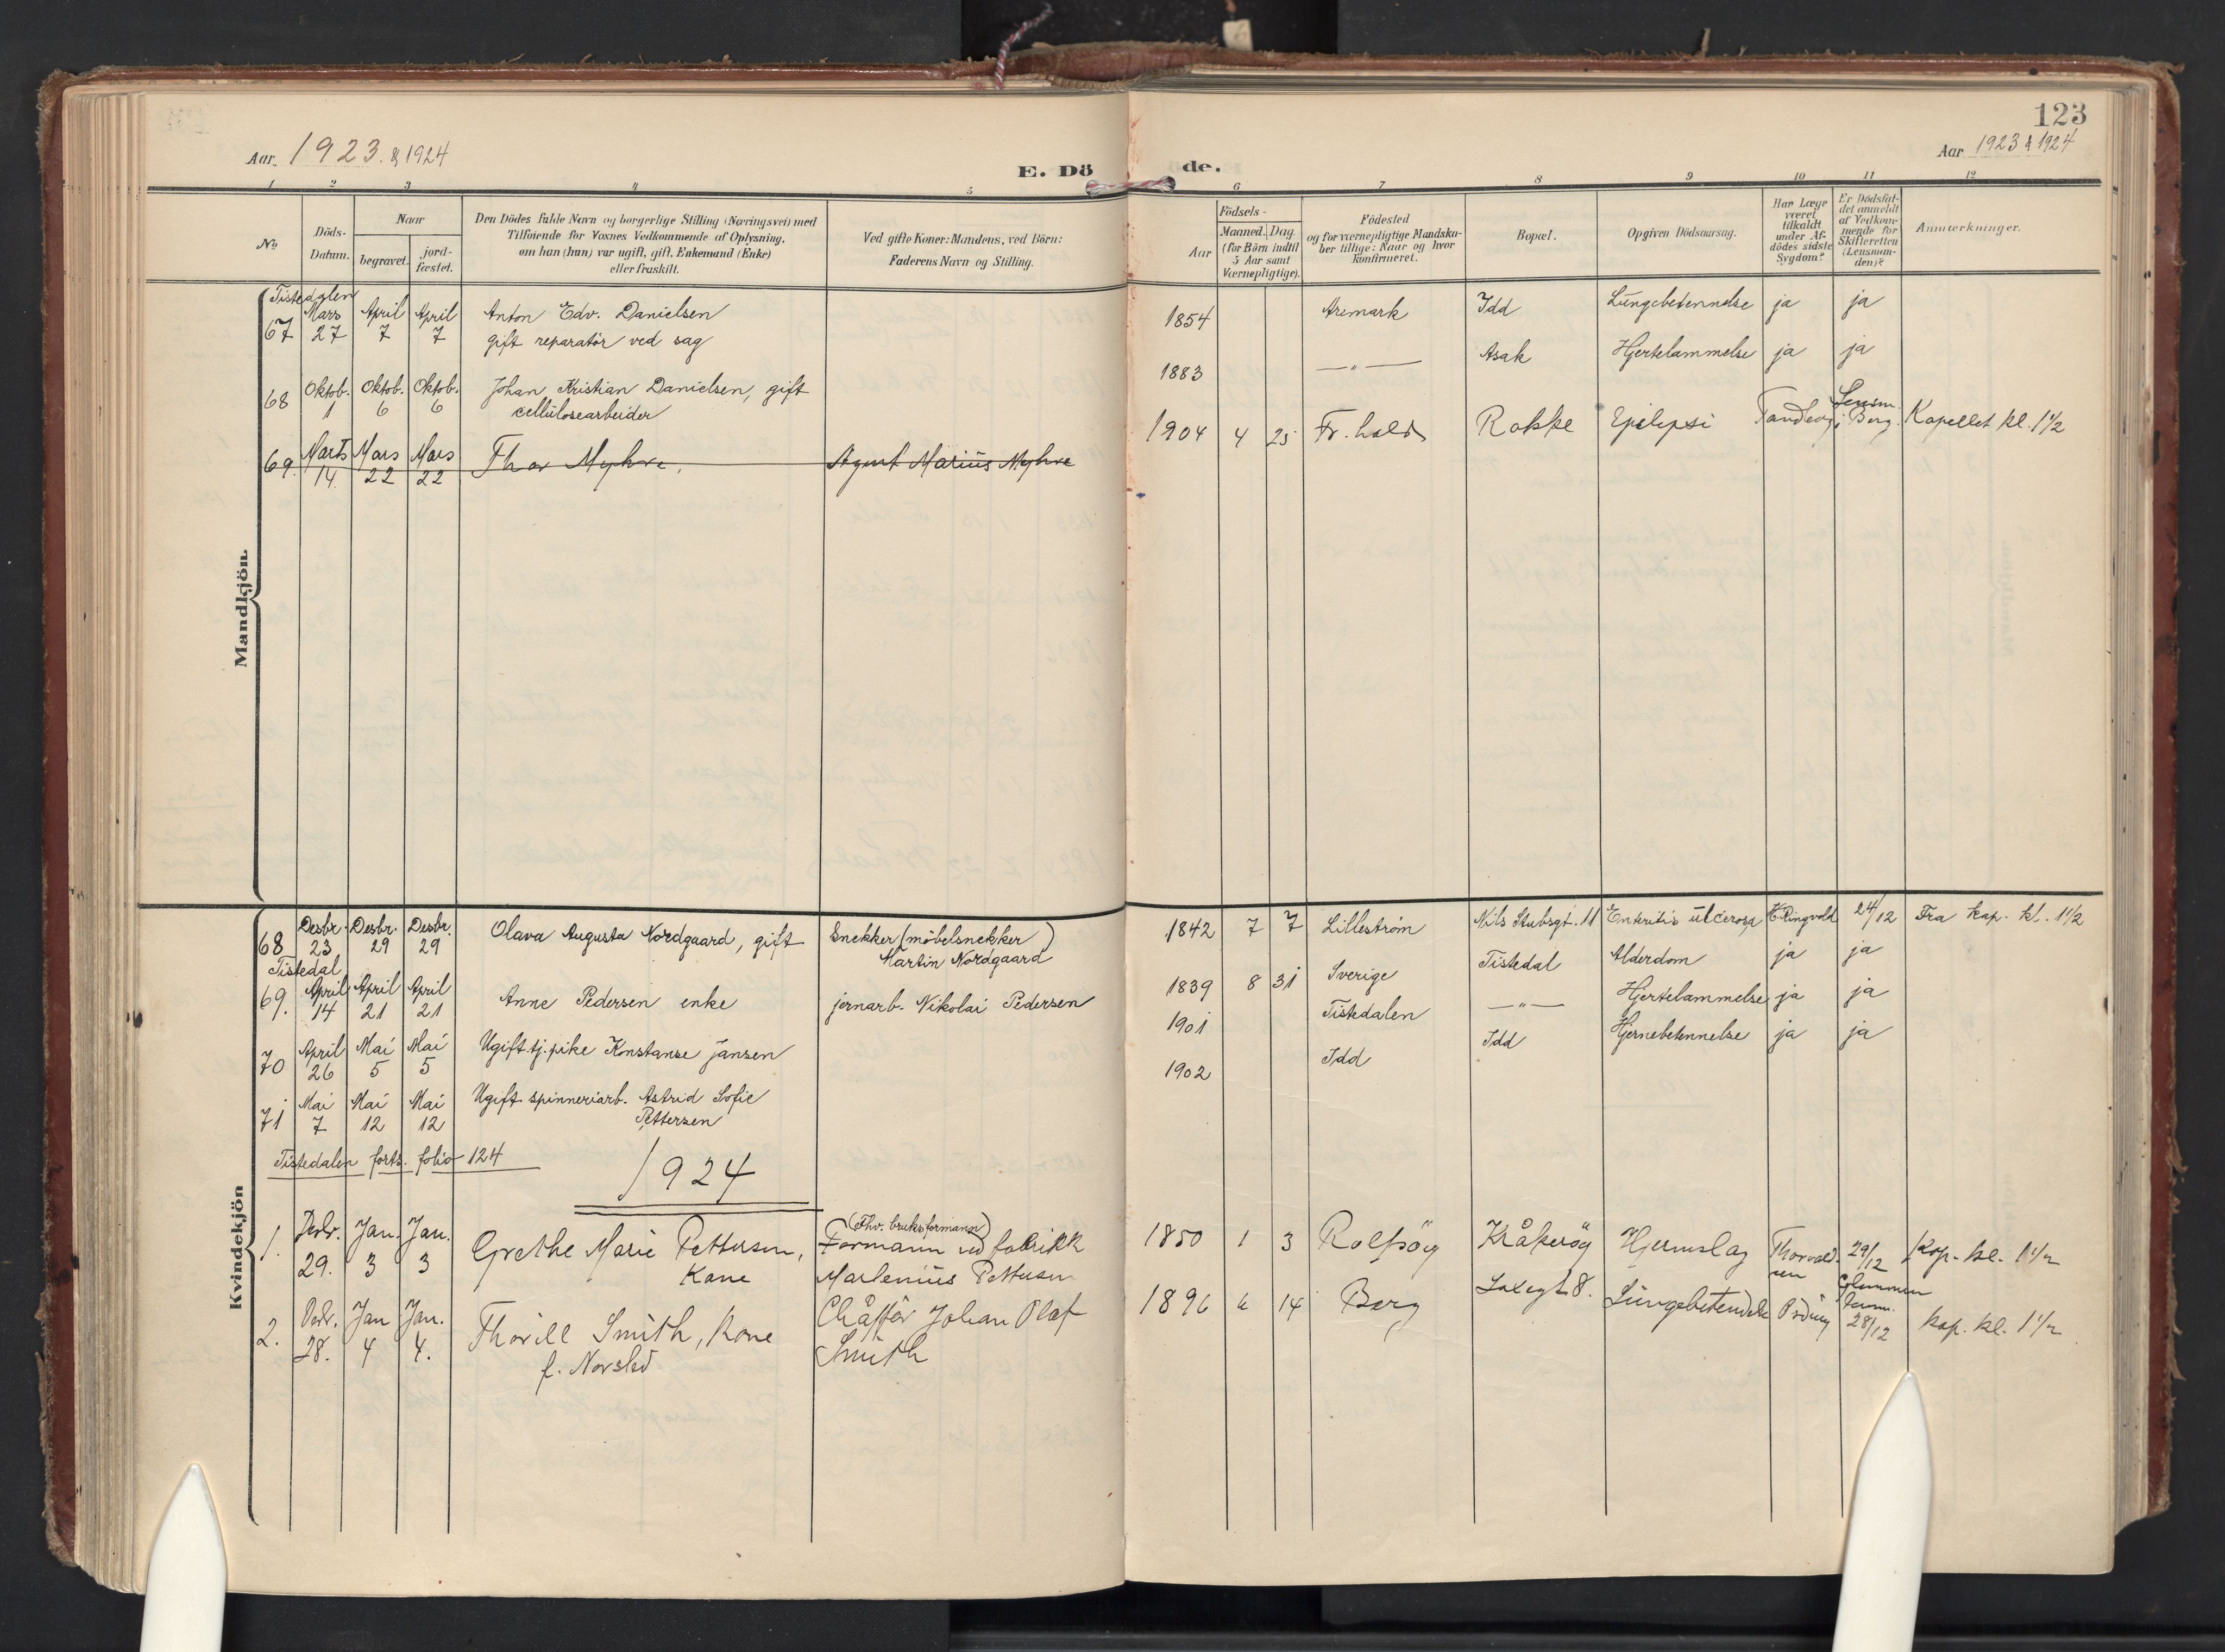 123
Aar. 1923. & 1924
Aar 1923 & 1924
E. Dö de.
1 2 3 4 5 6 7 8 9 10 11 12
No.
Döds-
Datum.
Naar
begravet.
jord-
fæstet.
Den Dödes fulde Navn og borgerlige Stilling (Næringsvei) med
Tilföiende for Voxnes Vedkommende af Oplysning,
om han (hun) var ugift, gift, Enkemand (Enke)
eller fraskilt.
Ved gifte Koner: Mandens, ved Börn:
Faderens Navn og Stilling.
Födsels-
Aar
Maaned. Dag
(for Börn indtil
5 Aar samt
Værnepligtige).
Födested
og for værnepligtige Mandska-
ber tillige: Naar og hvor
konfirmeret.
Bopæl.
Opgiven Dödsaarsag.
Har Læge
været
tilkaldt
under Af-
dödes sidste
Sygdom?
Er Dödsfal-
det anmeldt
af Vedkom-
mende for
Skifteretten
(Lensman-
den)?
Anmerkninger.
Mandkjön.
Tistedalen
67 Mars 27 April 7 April 7 Anton Edv. Danielsen
gift reparatör ved sag
1854 Aremark Idd Lungebetennelse ja ja
68 Oktob. 1 Oktob. 6 Oktob. 6 Johan Kristian Danielsen, gift
cellulosearbeider
1883 — " — Asak Hjertelammelse ja ja
69. Marts 14. Mars 22 Mars 22 Thor Myhre, Agent Marius Myhre
1904 4 25 Fr. hald Rokke Epilepsi Tandberg Lensm. i Berg. Kapellet kl. 1 1/2
Kvindekjön
68 Desbr. 23 Desbr. 29 Desbr. 29 Olava Augusta Nordgaard, gift Snekker (möbelsnekker)
Martin Nordgaard
1842 7 7 Lillestrøm Nils Stubsgt. 11 Enteritis ulcerosa E. Ringvold 24/12 Fra kap. kl. 1 1/2
Tistedal
69. April 14 April 21 April 21 Anne Pedersen enke jernarb. Nikolai Pedersen
1839 8 31 Sverige Tistedal Alderdom ja ja
70 April 26 Mai 5 Mai 5 Ugift tj.pike Konstanse Jansen
1901 Tistedalen — " — Hjertelammelse ja ja
71 Mai 7 Mai 12 Mai 12 Ugift spinneriarb. Astrid Sofie
Pettersen
1902 Idd Idd Hjernebetennelse ja ja
Tistedalen forts. folio 124
1924
1. Desbr. 29. Jan. 3 Jan. 3 Grethe Marie Pettersen,
Kone
(Fhv. bruksformann)
Formann ved fabrikk
Marlenius Pettersen
1850 1 3 Rolfsöy Kråkeröy Hjerneslag Thorvald-
sen 29/12 Kap. kl. 1 1/2
2. Desbr. 28. Jan 4 Jan. 4. Thorill Smith, Kone
f. Norsled
Chåffør Johan Olaf
Smith
1896 6 14 Berg Laxegt 8. Lungebetendelse 28/12 kap. kl. 1 1/2